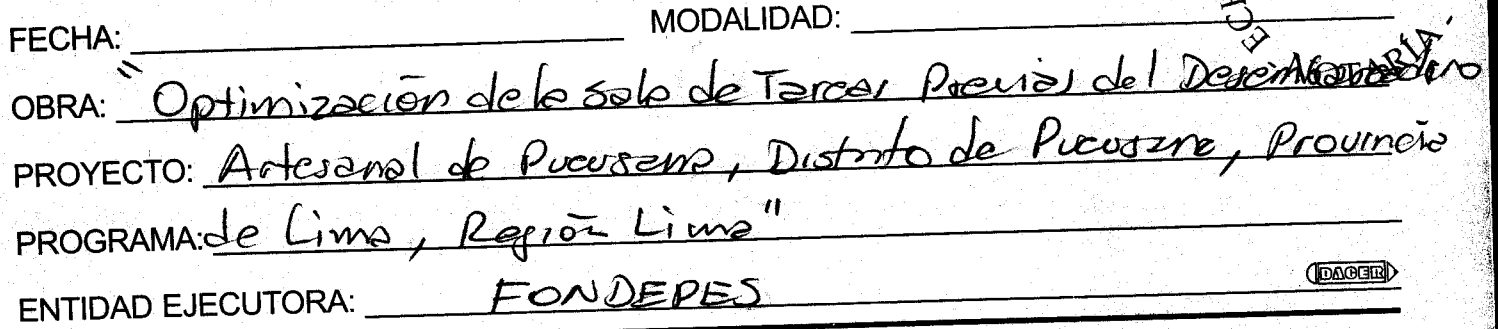 FECHA: MODALIDAD:
OBRA: "Optimización de la Sala de Tareas Previas del Desembarcadero
PROYECTO: Artesanal de Pucusana, Distrito de Pucusana, Provincia
PROGRAMA: de Lima, Región Lima"
DACER
ENTIDAD EJECUTORA: FONDEPES